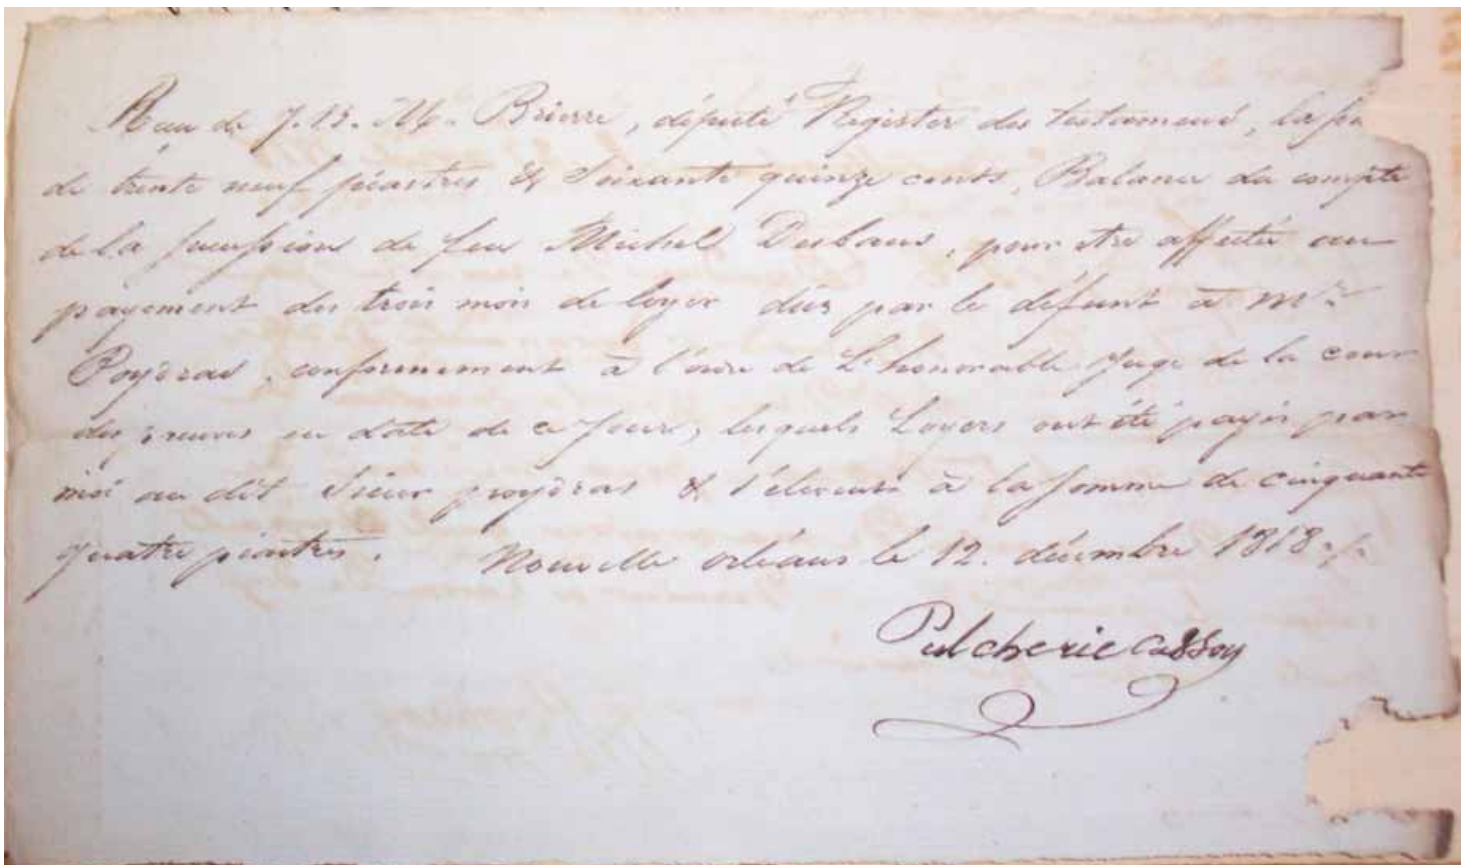 Recu de J. B. M. Brierre, député Register des testaments, la so
de trente neuf piastres & Soixante quinze cents, Balance du compte
de la succession de feu Michel Debaus, pour etre affectée au
payement des trois mois de loyer dûs par le défunt à Mr
Poydras, conformement à l'ordre de L'honorable Juge de la cour
des preuves en date de ce Jour, lesquels Loyers ont été payés par
moi au dit Sieur poydras & s'élevent à la somme de cinquante
quatre piastres. Nouvelle orléans le 12. décembre 1818
Pulcherie Cassoy